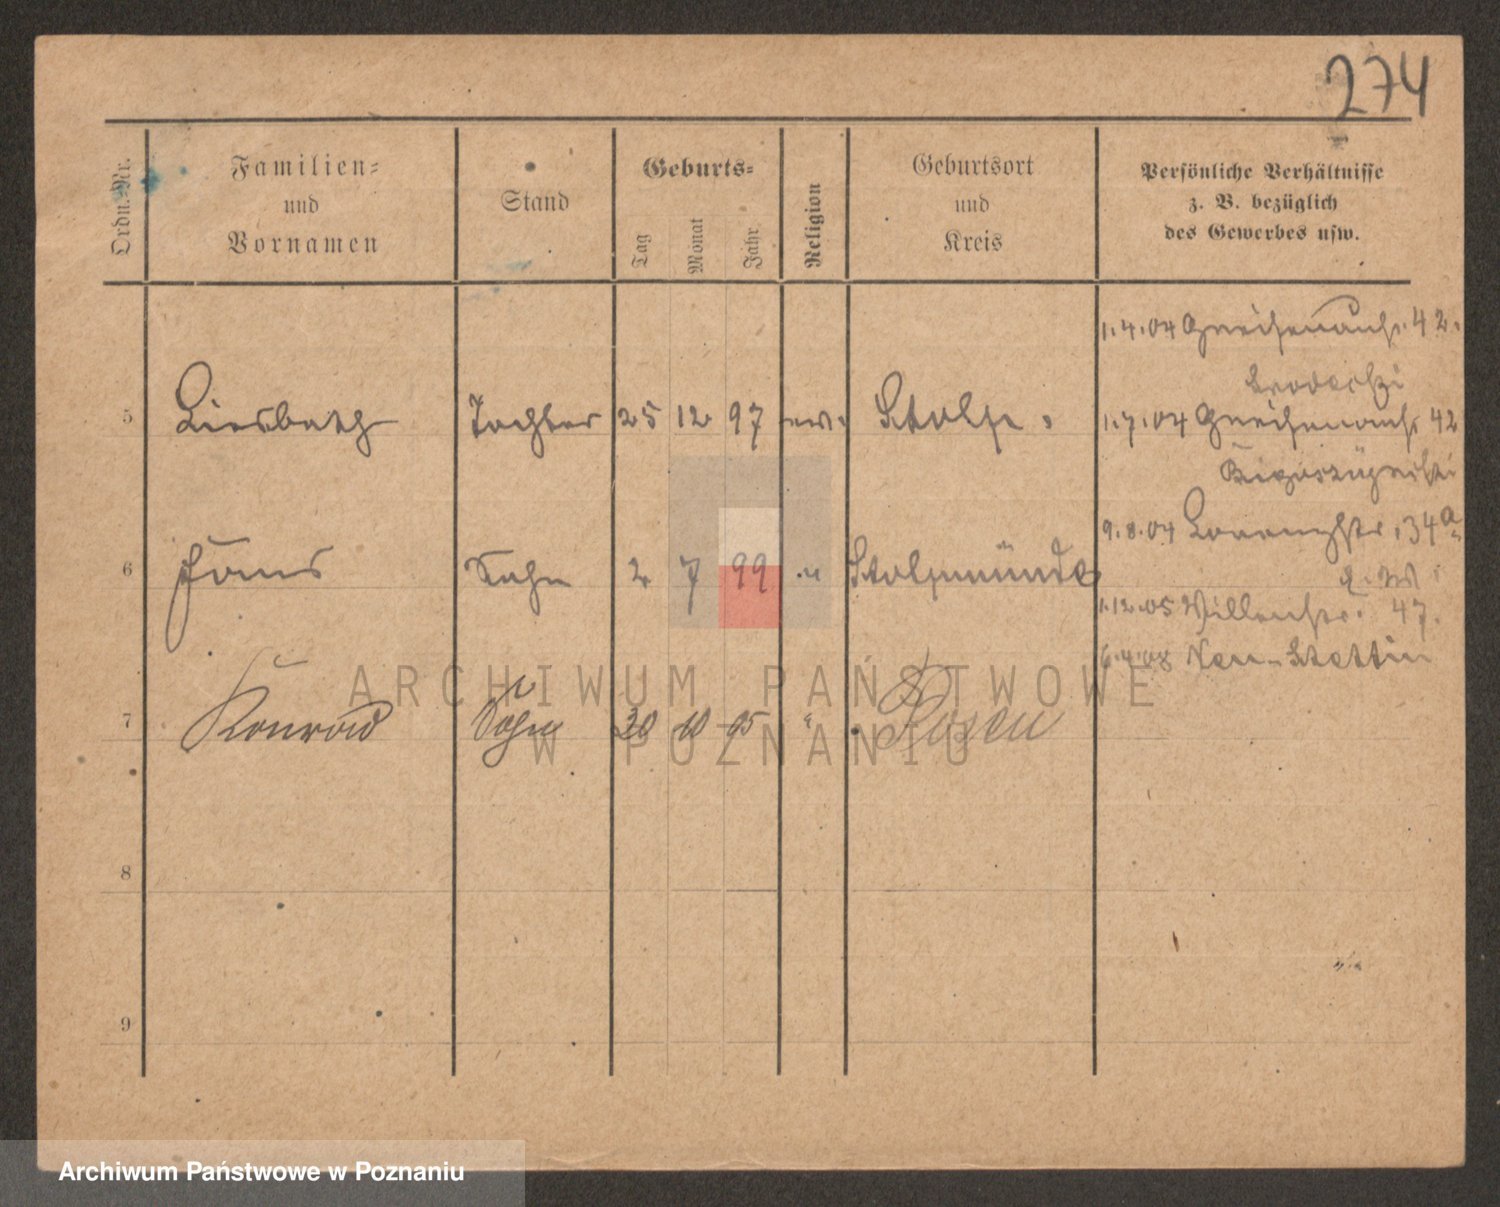 274
Ordn.-Nr.
Familien-
und
Vornamen
Stand
Geburts-
Tag
Monat
Jahr
Religion
Geburtsort
und
Kreis
Persönliche Verhältnisse
z. B. bezüglich
des Gewerbes usw.
1.4.04 Gneisenaustr. 42.
5 Liesbeth Tochter 25 12 97 ev. Stolp.
1.7.04 Gneisenaustr. 42
9.8.04 34a
6 Hans Sohn 2 7 99 " Stolpmünde
1.12.05 47.
6.4.08 Neu-Stettin
7 Konrad Sohn 30 10 05 " Posen
8
9
ARCHIWUM PAŃSTWOWE
W POZNANIU
Archiwum Państwowe w Poznaniu